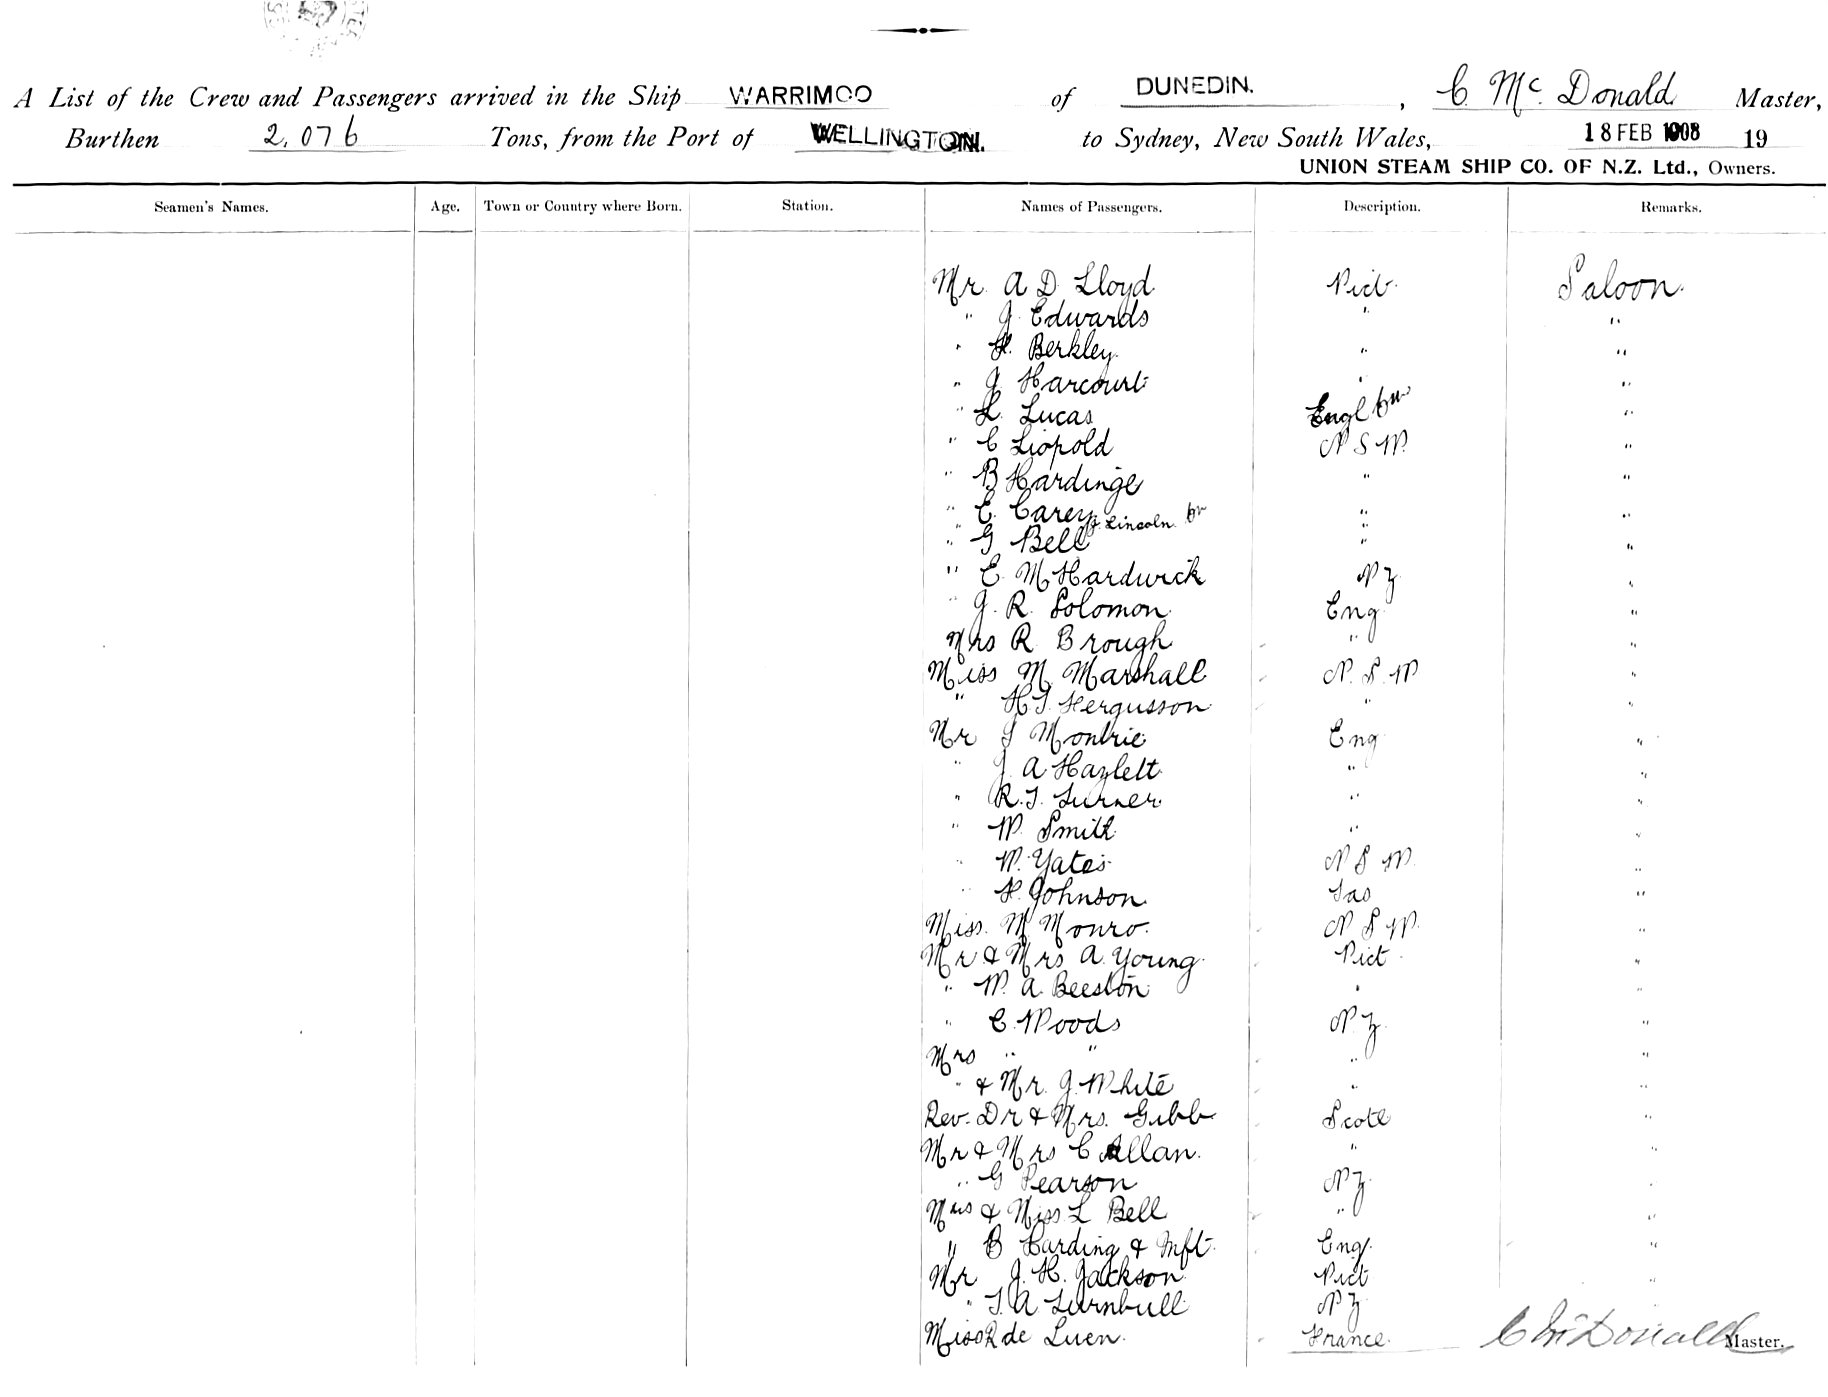 A List of the Crew and Passengers arrived in the Ship WARRIMOO of DUNEDIN. , C. Mc. Donald Master,
Burthen 2,076 Tons, from the Port of WELLINGTON. to Sydney, New South Wales, 18 FEB 1908 19
UNION STEAM SHIP CO. OF N.Z. Ltd., Owners.
Seamen's Names. Age. Town or Country where Born. Station. Names of Passengers. Description. Remarks.
Mr. A D. Lloyd Vict. Saloon.
" J. Edwards " "
" Berkley " "
" J. Harcourt " "
" L. Lucas Engl "
" C Liopold N S W. "
" B Hardinge " "
" E. Carey " "
" J. Lincoln "
" G Bell " "
" E. M Hardwick N Z. "
" J. R. Solomon Eng "
Mrs R. Brough " "
Miss M. Marshall N. S. W "
" H. F. Fergusson " "
Mr Montrie Eng "
" J. A Hazlett " "
" R. T. Turner " "
" W. Smith " "
" W. Yates N S W. "
" F. Johnson Tas "
Miss. M Monro. N S W. "
Mr & Mrs A. Young Vict "
" W. A. Beeston " "
" C. Woods N Z. "
Mrs " " " "
" & Mr. J. White " "
Rev. Dr & Mrs. Gibb Scotl "
Mr & Mrs C Allan. " "
" G Pearson N Z. "
Mrs & Miss L Bell " "
" B Harding & Inft. Eng. "
Mr J. H. Jackson Vict "
" T. A. Turnbull N Z "
Miss R de Luen. France.
C McDonald Master.